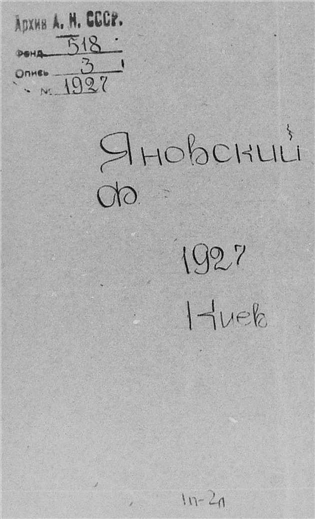 Архив А. Н. СССР.
Фонд 518
Опись 3
№ 1927
Яновский
Ф
1927
Киев
1п-2л